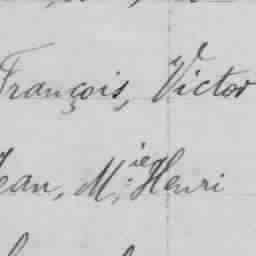 François, Victor
Jean, M.ie Henri